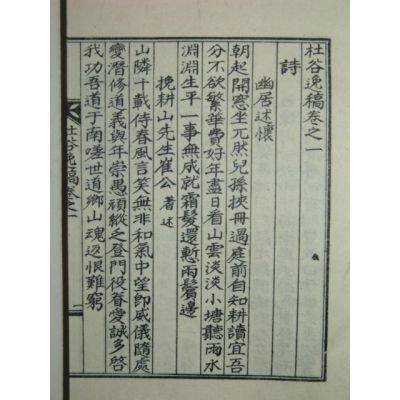 杜谷逸稿卷之一
詩
幽居述懷
朝起開窓坐兀然兒孫挾冊過庭前自知耕讀宜吾
分不欲繁華費好年盡日看山雲淡淡小塘聽雨水
淵淵生平一事無成就霜髮還慙兩鬢邊
挽耕山先生崔公著述
山隣十載侍春風言笑無非和氣中望卽威儀隨處
變潛修道義與年崇愚頑縱乏登門役眷愛誠多啓
我功吾道于南嗟世道鄕山魂返恨難窮
杜谷逸稿卷之一